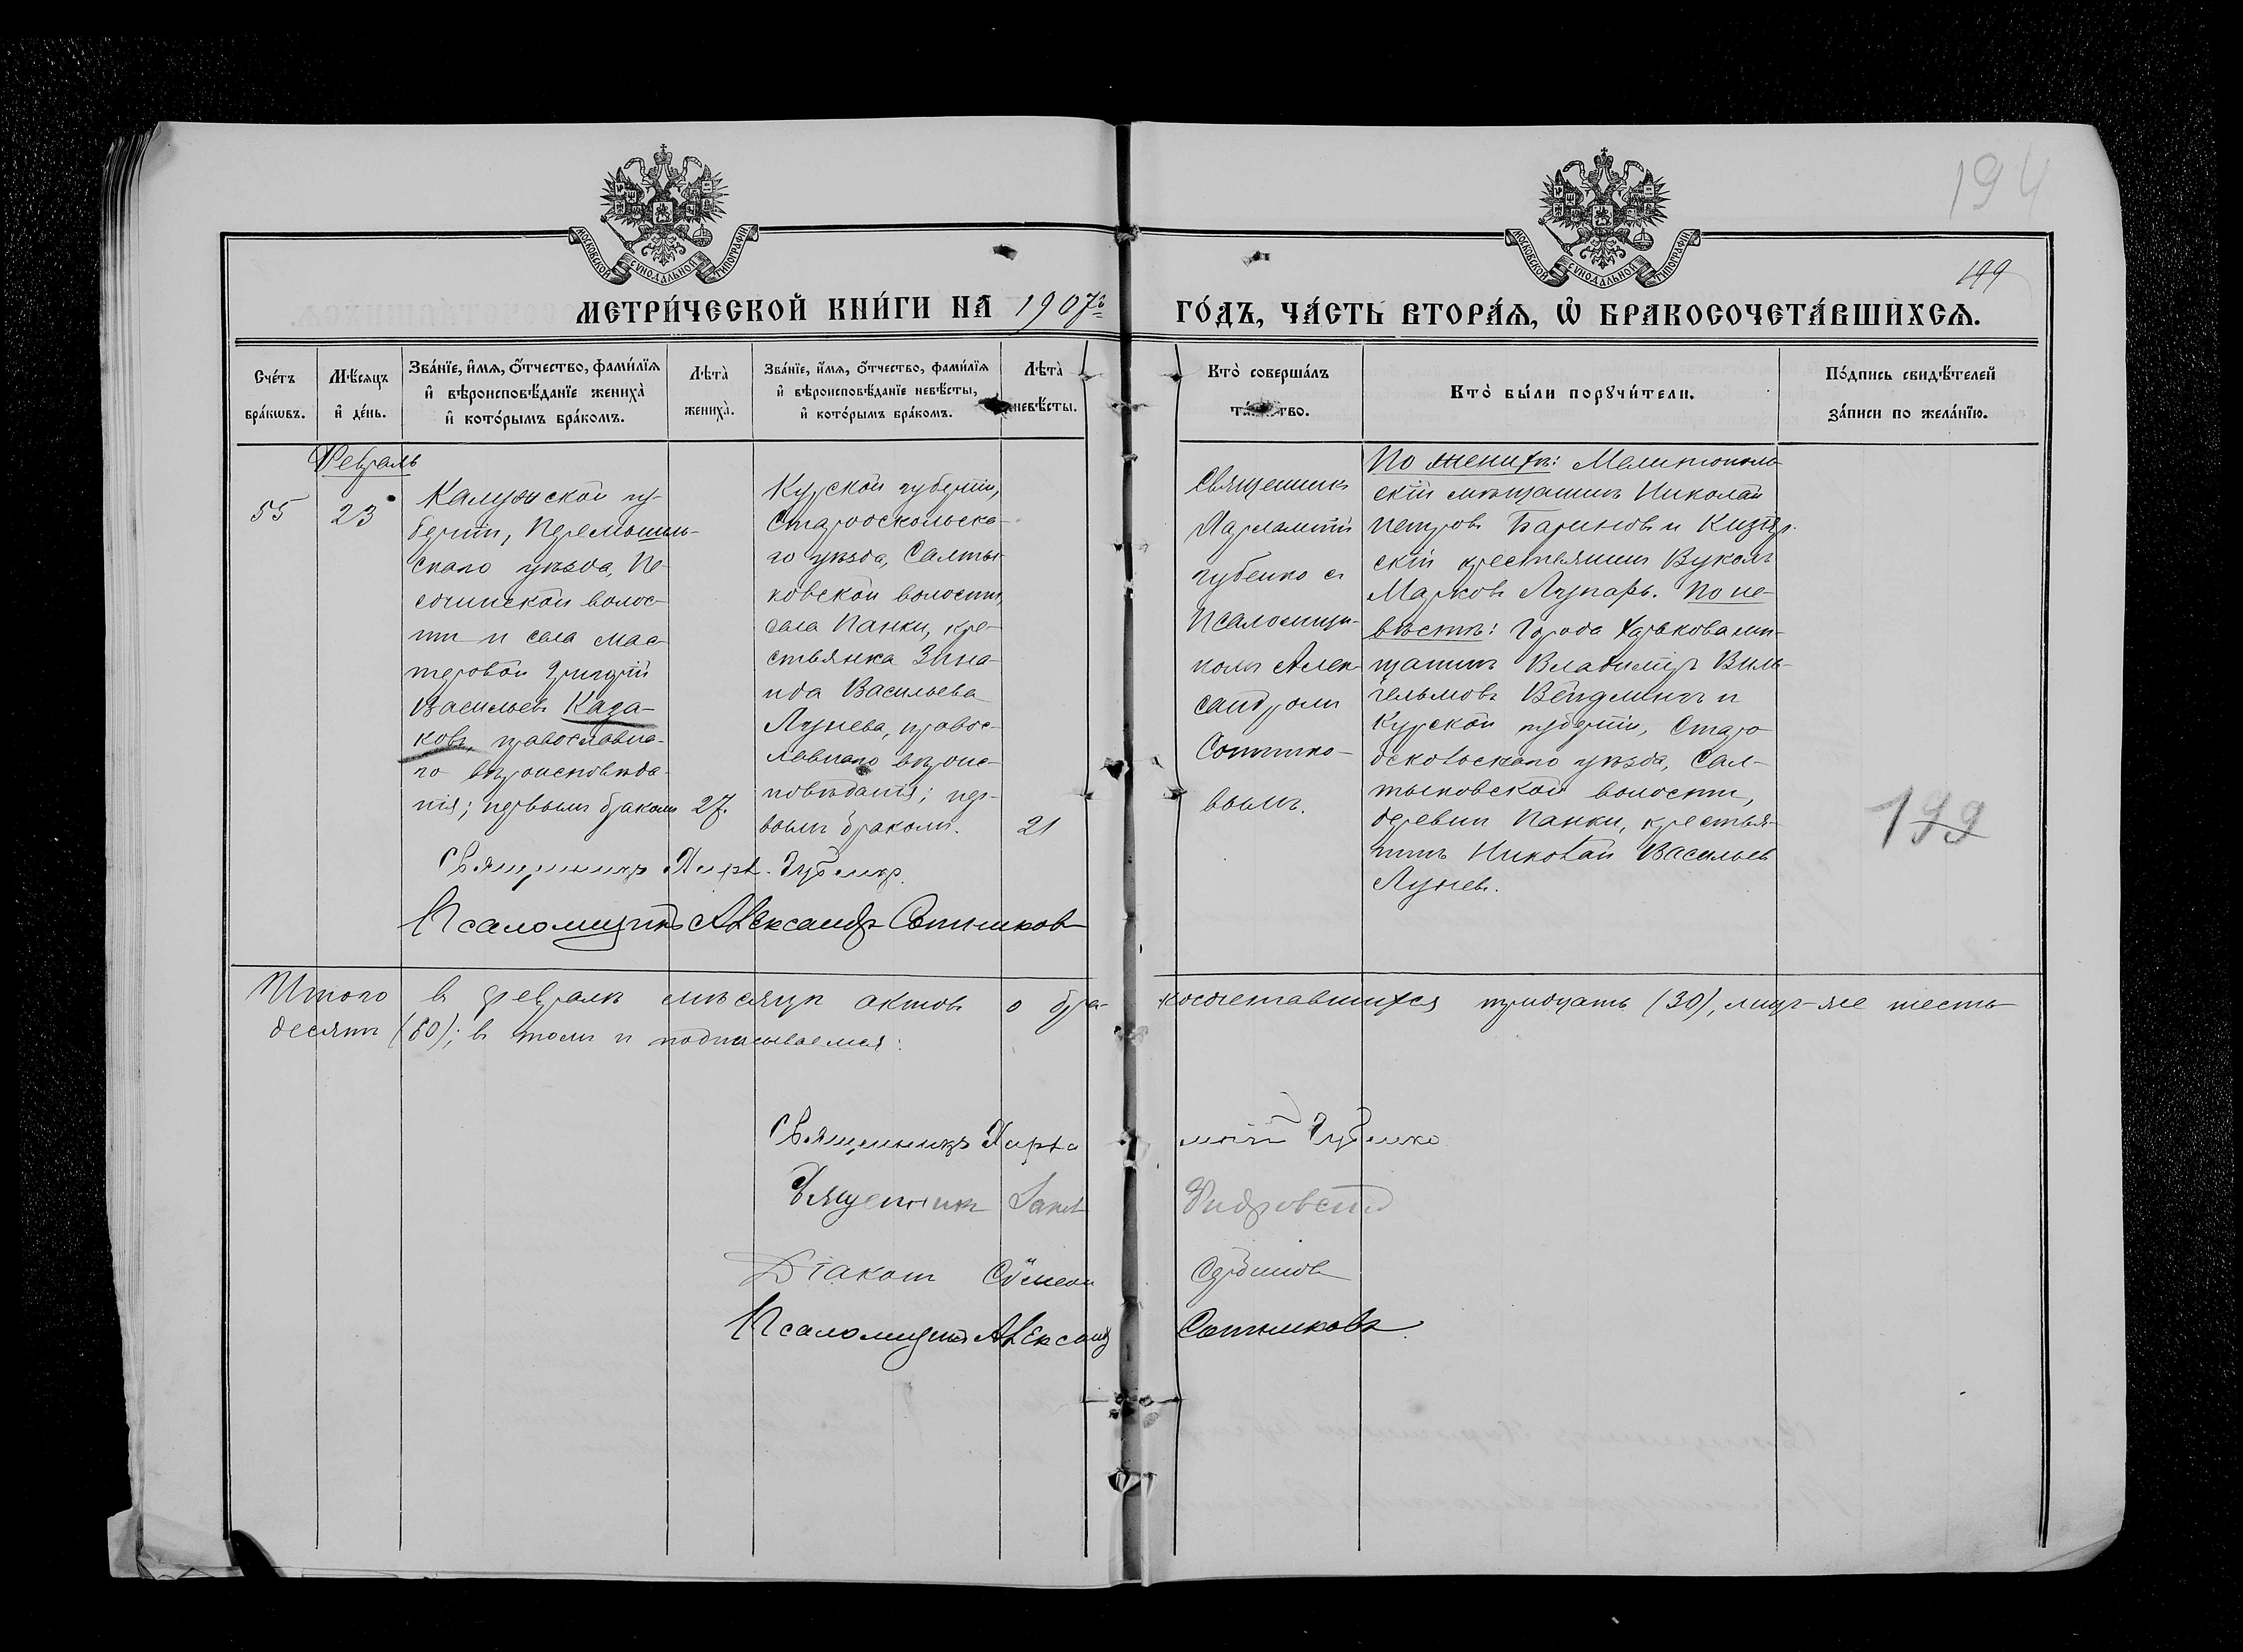 194
199
МОСКОВСКОЙ СУНОДАЛЬНОЙ ТИПОГРАФІИ
МОСКОВСКОЙ СУНОДАЛЬНОЙ ТИПОГРАФІИ
МЕТРИ́ЧЕСКОЙ КНИ́ГИ НА 1907й ГО́ДЪ, ЧА́СТЬ ВТОРА́Ѧ, Ѡ҆ БРАКОСОЧЕТА́ВШИХСѦ.
Сче́тъ
бра́кѡвъ.
Мѣ́сѧцъ
и҆ де́нь.
Зва́нїе, и҆́мѧ, ѻ҆́тчество, фами́лїѧ
и҆ вѣроисповѣ́данїе жениха̀
и҆ кото́рымъ бра́комъ.
Лѣта̀
жениха̀.
Зва́нїе, и҆́мѧ, ѻ҆́тчество, фами́лїѧ
и҆ вѣроисповѣ́данїе невѣ́сты,
и҆ кото́рымъ бра́комъ.
Лѣта̀
невѣ́сты.
Кто̀ соверша́лъ
та тво.
Кто̀ бы́ли порꙋчи́тели.
По́дпись свидѣ́телей
за́писи по жела́нїю.
Февраль
55
23
Калужской гу-
берніи, Перемышль-
скаго уѣзда, Пе-
сочинской волос-
ти и села мас-
теровой Григорій
Васильевъ Каза-
ковъ, православна-
го вѣроисповѣда-
нія; первымъ бракомъ
27.
Курской губерніи,
Старооскольска-
го уѣзда, Салты-
ковской волости,
села Панки, кре-
стьянка Зина-
ида Васильева
Лунева, правос-
лавнаго вѣроис-
повѣданія; пер-
вымъ бракомъ.
21
Священникъ
Харлампій
Губенко съ
Псаломщи-
комъ Алек-
сандромъ
Сотнико-
вымъ.
По женихѣ: Мелитополь-
скій мѣщанинъ Николай
Петровъ Бариновъ и
скій крестьянинъ Вуколъ
Марковъ . По не-
вѣстѣ: города Харькова мѣ-
щанинъ Владиміръ Виль-
гельмовъ и
Курской губерніи, Старо
оскольскаго уѣзда, Сал-
тыковской волости,
деревни Панки, крестья-
нинъ Николай Васильевъ
Луневъ.
199
Священникъ Харл. Губенко.
Псаломщикъ Александръ Сотниковъ
Итого въ февралѣ мѣсяцѣ актовъ о бра- косочетавшихся тридцать (30), лицъ-же шесть-
десятъ (60); въ томъ и подписываемся:
Священникъ Харла мпій Губенко
Священникъ
Діаконъ Сѵмеонъ
Псаломщикъ Александръ Сотниковъ.